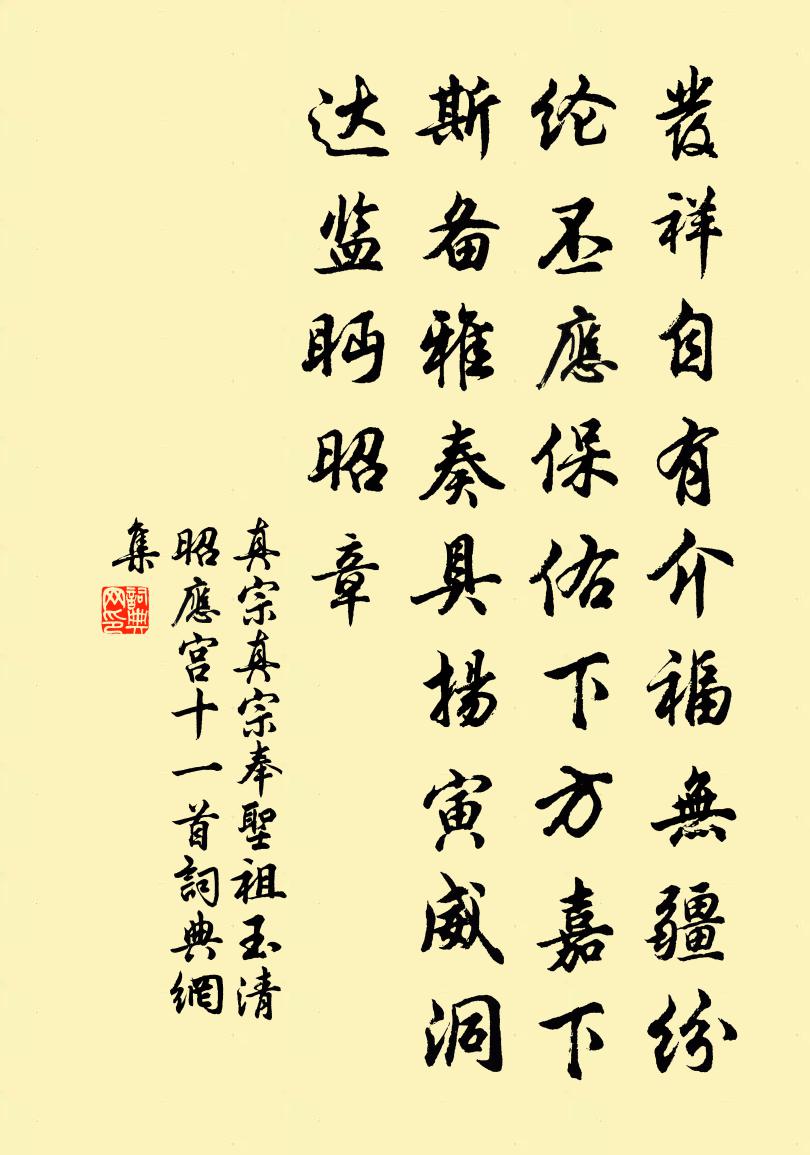 發祥自有介福無疆纷
纶丕應保佑下方嘉下
斯备雅奏具揚寅威洞
达监眄昭章
真宗真宗奉聖祖玉清
昭應宫十一首詞典網
集
詞典
网印